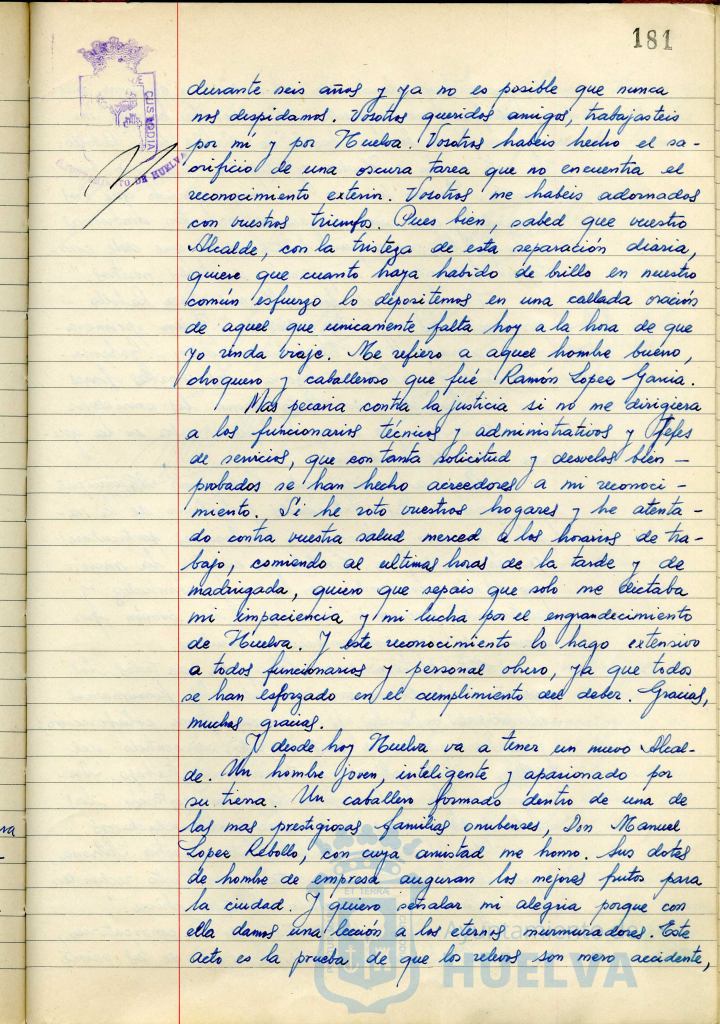 181
CUSTODIA
AYUNTAMIENTO DE HUELVA
durante seis años y ya no es posible que nunca
nos despidamos. Vosotros queridos amigos, trabajasteis
por mí y por Huelva. Vosotros habeis hecho el sa-
crificio de una oscura tarea que no encuentra el
reconocimiento exterior. Vosotros me habeis adornados
con vuestros triunfos. Pues bien, sabed que vuestro
Alcalde, con la tristeza de esta separación diaria,
quiere que cuanto haya habido de brillo en nuestro
común esfuerzo lo depositemos en una callada oración
de aquel que unicamente falta hoy a la hora de que
yo rinda viaje. Me refiero a aquel hombre bueno,
choquero y caballeroso que fué Ramón Lopez Garcia.
Mas pecaria contra la justicia si no me dirigiera
a los funcionarios técnicos y administrativos y Jefes
de servicios, que con tanta solicitud y desvelos bien -
probados se han hecho acreedores a mi reconoci -
miento. Si he roto vuestros hogares y he atenta-
do contra vuestra salud merced a los horarios de tra-
bajo, comiendo al ultimas horas de la tarde y de
madrigada, quiero que sepais que solo me dictaba
mi impaciencia y mi lucha por el engrandecimiento
de Huelva. Y este reconocimiento lo hago extensivo
a todos funcionarios y personal obrero, ya que todos
se han esforzado en el cumplimiento del deber. Gracias,
muchas gracias.
Y desde hoy Huelva va a tener un nuevo Alcal-
de. Un hombre joven, inteligente y apasionado por
su tierra. Un caballero formado dentro de una de
las mas prestigiosas familias onubenses, Don Manuel
Lopez Rebollo, con cuya amistad me honro. Sus dotes
de hombre de empresa auguran los mejores frutos para
la ciudad. Y quiero señalar mi alegria porque con
ella damos una lección a los eternos murmuradores. Este
acto es la prueba de que los relevos son mero accidente,
ET TERRAE
Ayuntamiento
HUELVA